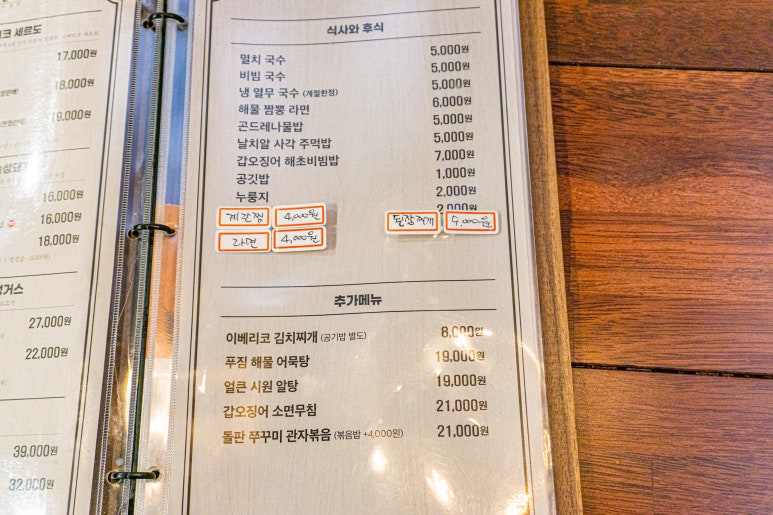 코 세르도
17,000원
18,000원
19,000원
숙성돼지
16,000원
16,000원
18,000원
27,000원
22,000원
39,000원
32,000원
식사와 후식
멸치 국수 5,000원
비빔 국수 5,000원
냉 열무 국수 (계절한정) 5,000원
해물 짬뽕 라면 6,000원
곤드레나물밥 5,000원
날치알 사각 주먹밥 5,000원
갑오징어 해초비빔밥 7,000원
공깃밥 1,000원
누룽지 2,000원
2,000원
계란찜 4,000원 된장찌개 5,000원
라면 4,000원
추가메뉴
이베리코 김치찌개 (공기밥 별도) 8,000원
푸짐 해물 어묵탕 19,000원
얼큰 시원 알탕 19,000원
갑오징어 소면무침 21,000원
돌판 쭈꾸미 관자볶음 (볶음밥 +4,000원) 21,000원